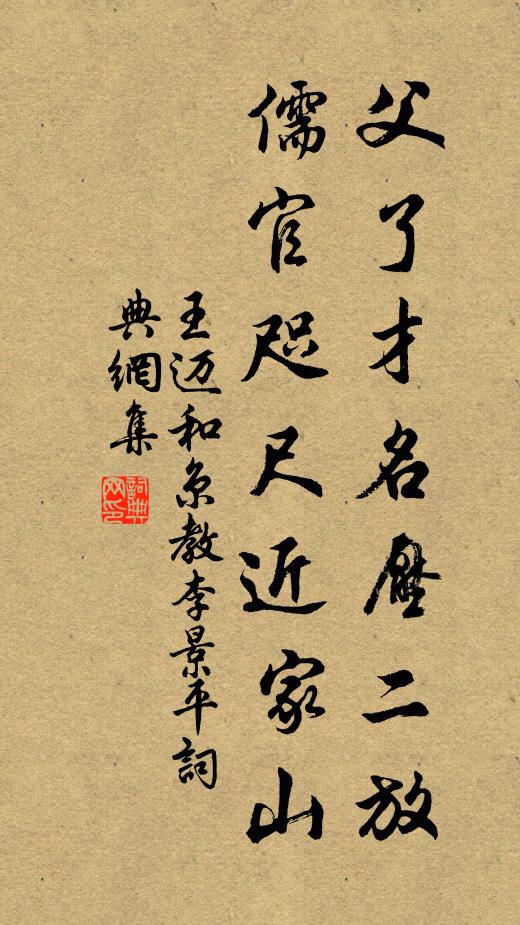 父了才名壓二放
儒官咫尺近家山
王迈和京教李景平詞
典網集
詞典網印